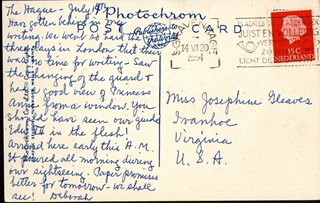 The Hague - July 14
Photochrom
POST CARD
Have gotten behind in my
writing. We were so busy the
three days in London that there
was no time for writing - Saw
the changing of the guard &
had a good view of Princess
Anne from a window. You
should have seen our guide
Ed in the flesh!
Arrived here early this A.M.
It poured all morning during
our sightseeing - Paper promises
better for tomorrow - we shall
see! Deborah
Miss Josephine
Ivanhoe
Virginia
U.S.A.
14 VII 20
JUIST EN VOLLEDIG
LICHT DE
15C
NEDERLAND